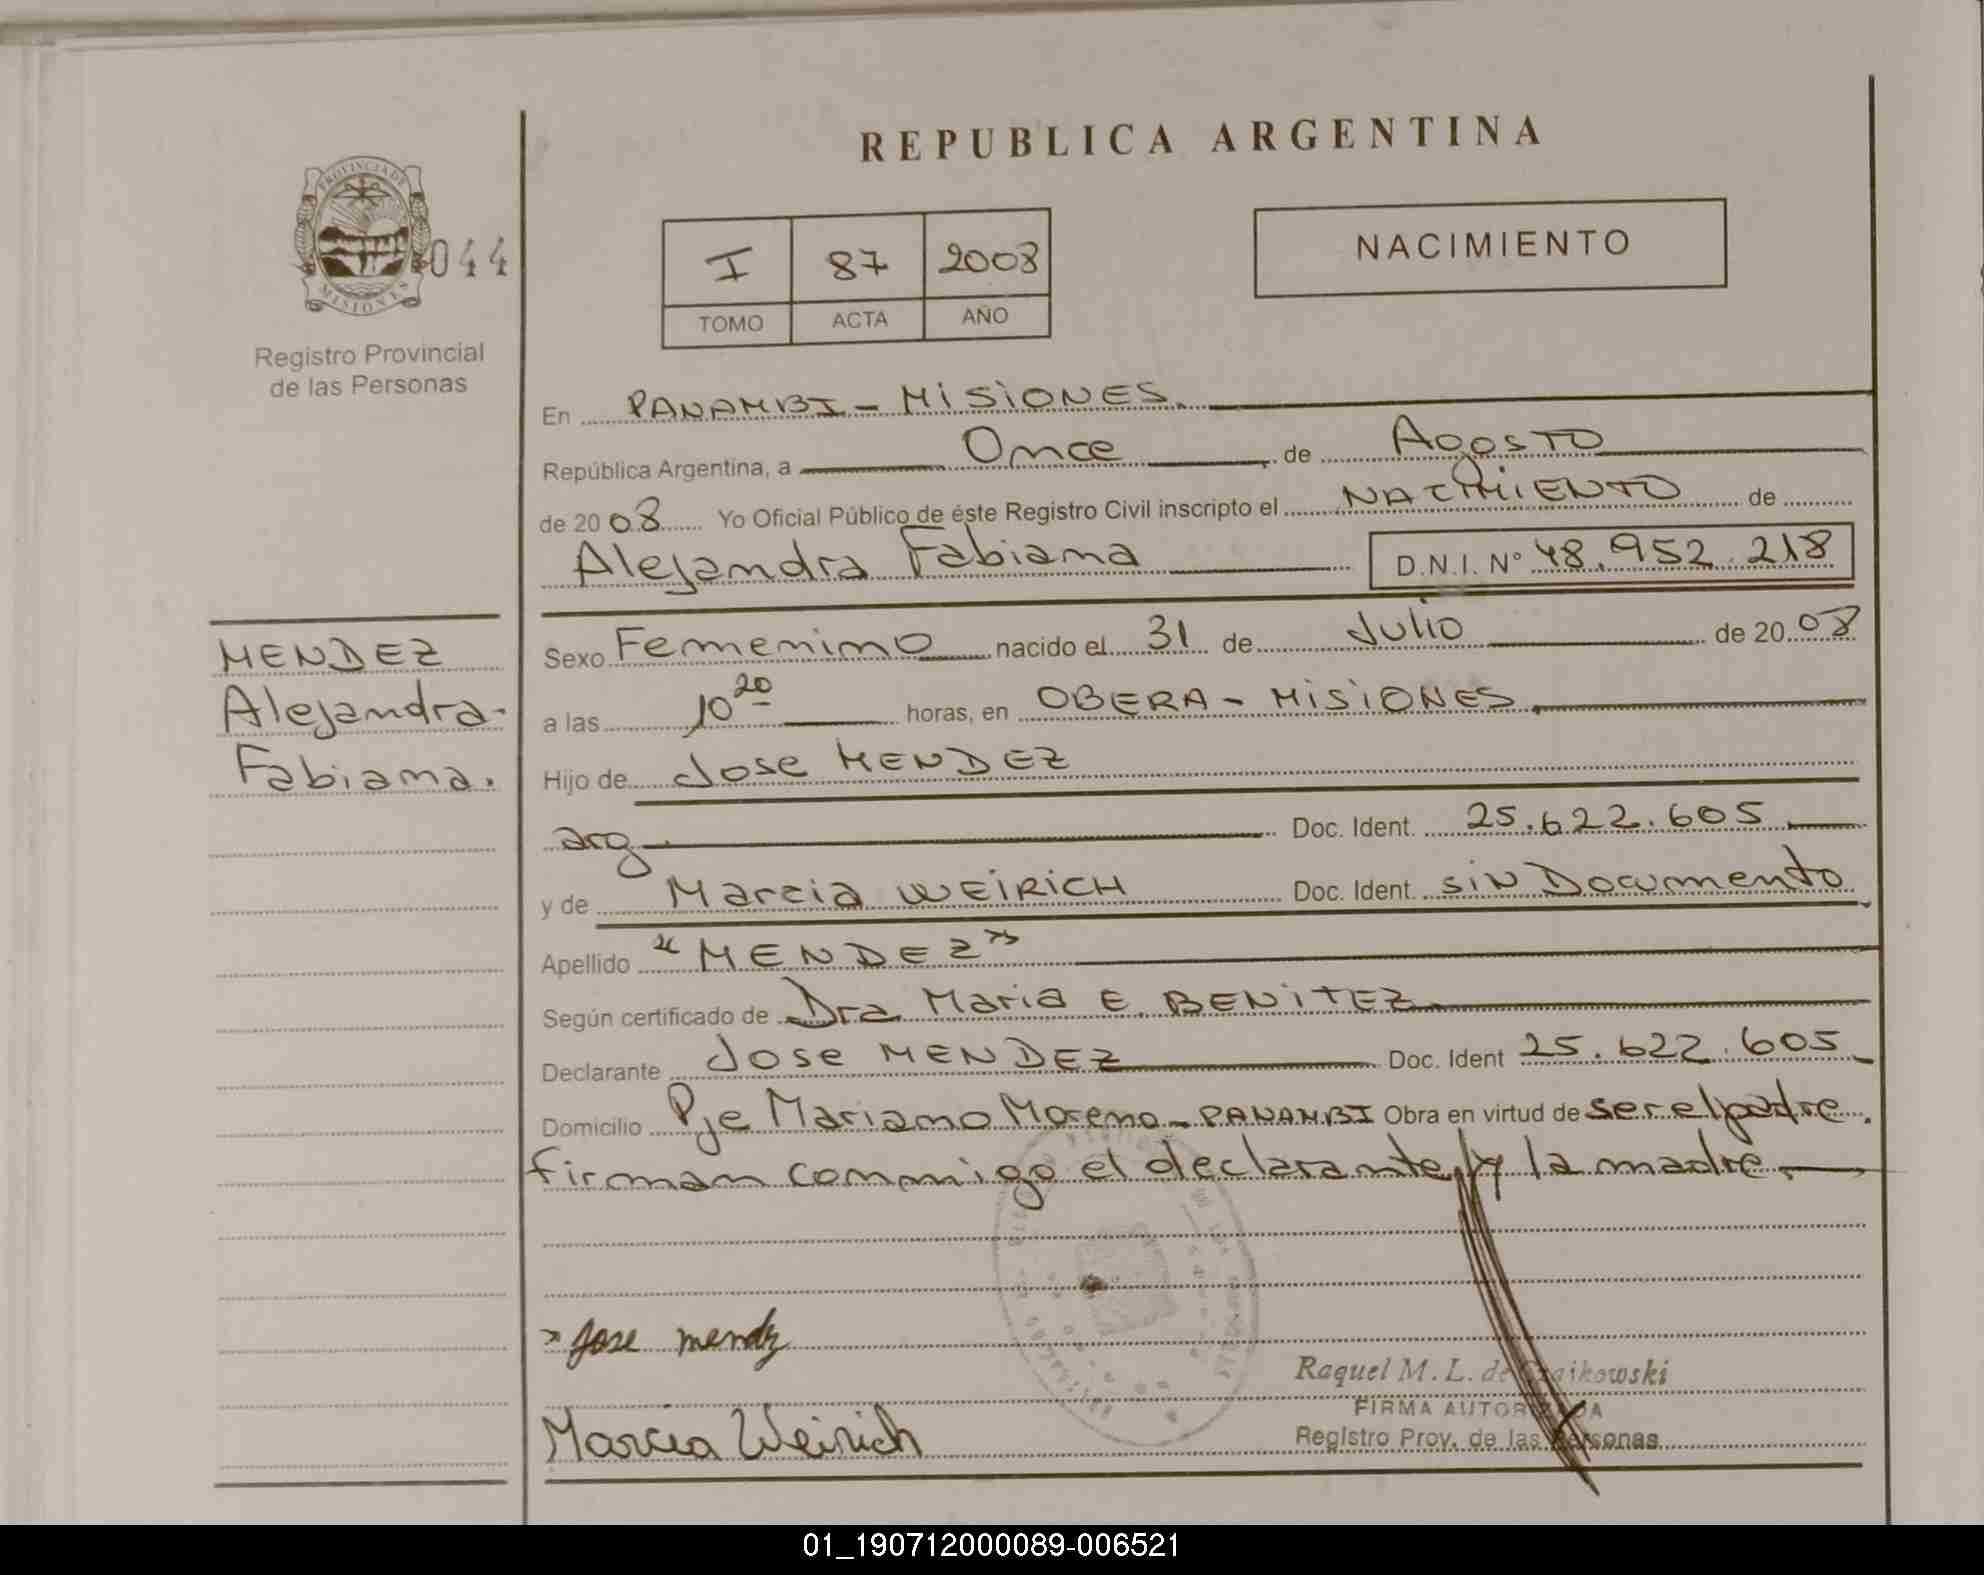 REPUBLICA ARGENTINA
PROVINCIA DE
MISIONES
044
Registro Provincial
de las Personas
I 87 2008
TOMO ACTA AÑO
NACIMIENTO
En PANAMBI - MISIONES.
República Argentina, a Once de Agosto
de 2008 Yo Oficial Público de éste Registro Civil inscripto el NACIMIENTO de
Alejandra Fabiana D.N.I. Nº 48.952.218
MENDEZ
Alejandra
Fabiana.
Sexo Femenino nacido el 31 de Julio de 2008
a las 10 20 horas, en OBERA - MISIONES
Hijo de Jose MENDEZ
arg Doc. Ident. 25.622.605
y de Marcia WEIRICH Doc. Ident. sin Documento
Apellido "MENDEZ"
Según certificado de Dra Maria E. BENITEZ
Declarante Jose MENDEZ Doc. Ident 25.622.605
Domicilio Pje Mariano Moreno - PANAMBI Obra en virtud de ser el padre.
firman conmigo el declarante y la madre.
Jose mendz
Raquel M. L. de Czaikowski
FIRMA AUTORIZADA
Marcia Weirich
Registro Prov. de las Personas
01_190712000089-006521